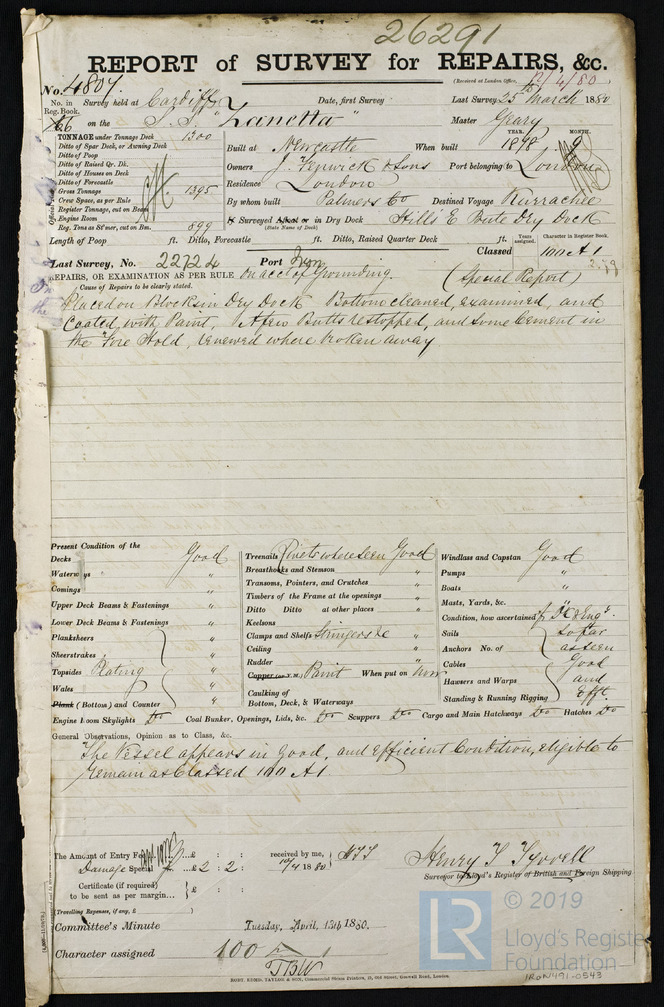 26291
REPORT of SURVEY for REPAIRS, &c.
(Received at London Office, 12/4/80
No. 4807
No. in Reg. Book. Survey held at Cardiff Date, first Survey Last Survey 25th March 1880
766 on the S.S. "Zanetta" Master Geary
TONNAGE under Tonnage Deck 1300
Ditto of Spar Deck, or Awning Deck
Ditto of Poop
Ditto of Raised Qr. Dk.
Ditto of Houses on Deck
Ditto of Forecastle
Gross Tonnage 1395
Crew Space, as per Rule
Register Tonnage, cut on Beam
Engine Room
Reg. Tons as St'mer, cut on Bm. 899
Built at Newcastle When built YEAR. 1878 MONTH. 9
Owners J. Fenwick & Sons Port belonging to London
Residence London
By whom built Palmers Co Destined Voyage Kurrachee
If Surveyed Afloat or in Dry Dock Hills E Bute Dry Dock
(State Name of Dock)
Length of Poop ft. Ditto, Forecastle ft. Ditto, Raised Quarter Deck ft.
Years assigned. Character in Register Book.
Classed 100 A1
Last Survey, No. 22724 Port
REPAIRS, OR EXAMINATION AS PER RULE On acct of Grounding. (Special Report)
Cause of Repairs to be clearly stated.
Placed on Blocks in Dry Dock Bottom cleaned, examined, and
Coated with Paint, A few Butts restopped, and some Cement in
the Fore Hold, renewed where broken away
Present Condition of the
Decks Good
Waterways "
Comings "
Upper Deck Beams & Fastenings "
Lower Deck Beams & Fastenings "
Planksheers "
Sheerstrakes "
Topsides Plating "
Wales "
Plank (Bottom) and Counter "
Treenails Rivets where seen Good
Breasthooks and Stemson "
Transoms, Pointers, and Crutches "
Timbers of the Frame at the openings "
Ditto Ditto at other places "
Keelsons "
Clamps and Shelfs Stringers &c "
Ceiling "
Rudder "
Copper (or Y.M.) Paint When put on Now
Caulking of
Bottom, Deck, & Waterways
Windlass and Capstan Good
Pumps "
Boats "
Masts, Yards, &c. "
Condition, how ascertained
Sails So far
Anchors No. of as seen
Cables Good
Hawsers and Warps and
Standing & Running Rigging Efft.
Engine Room Skylights Do Coal Bunker, Openings, Lids, &c. Do Scuppers Do Cargo and Main Hatchways Do Hatches Do
General Observations, Opinion as to Class, &c.
The Vessel appears in Good, and Efficient Condition, eligible to
remain as Classed 100 A1
The Amount of Entry Fee ...£ : : received by me,
Damage Special ...£ 2 : 2 : 10/4 1880
Certificate (if required) to be sent as per margin... £ : :
(Travelling Expenses, if any, £ )
Henry T Tyrrell
Surveyor to Lloyd's Register of British and Foreign Shipping
Committee's Minute Tuesday, April, 13th 1880.
Character assigned 100 A
TBW
© 2019
LR Lloyd's Register Foundation
IRON491-0543